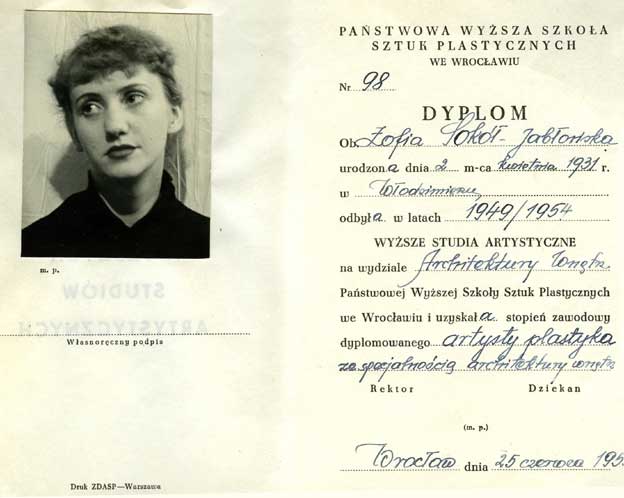 PAŃSTWOWA WYŻSZA SZKOŁA
SZTUK PLASTYCZNYCH
WE WROCŁAWIU
Nr. 98
DYPLOM
Ob. Zofia Sokół-Jabłońska
urodzona dnia 2 m-ca kwietnia 1931 r.
w Włodzimierzu
odbyła w latach 1949/1954
WYŻSZE STUDIA ARTYSTYCZNE
na wydziale Architektury Wnętrz
Państwowej Wyższej Szkoły Sztuk Plastycznych
we Wrocławiu i uzyskała stopień zawodowy
dyplomowanego artysty plastyka
ze specjalnością architektury wnętrz
Rektor Dziekan
(m. p.)
Wrocław dnia 25 czerwca 195
m. p.
STUDIÓW
ARTYSTYCZNYCH
Własnoręczny podpis
Druk ZDASP—Warszawa